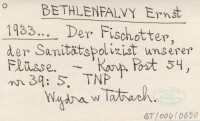 BETHLENFALVY Ernst
1933... Der Fischotter,
der Sanitätspolizist unserer
Flüsse. - Karp. Post 54,
nr 39: 5. TNP
Wydra w Tatrach.
BT/001/0650